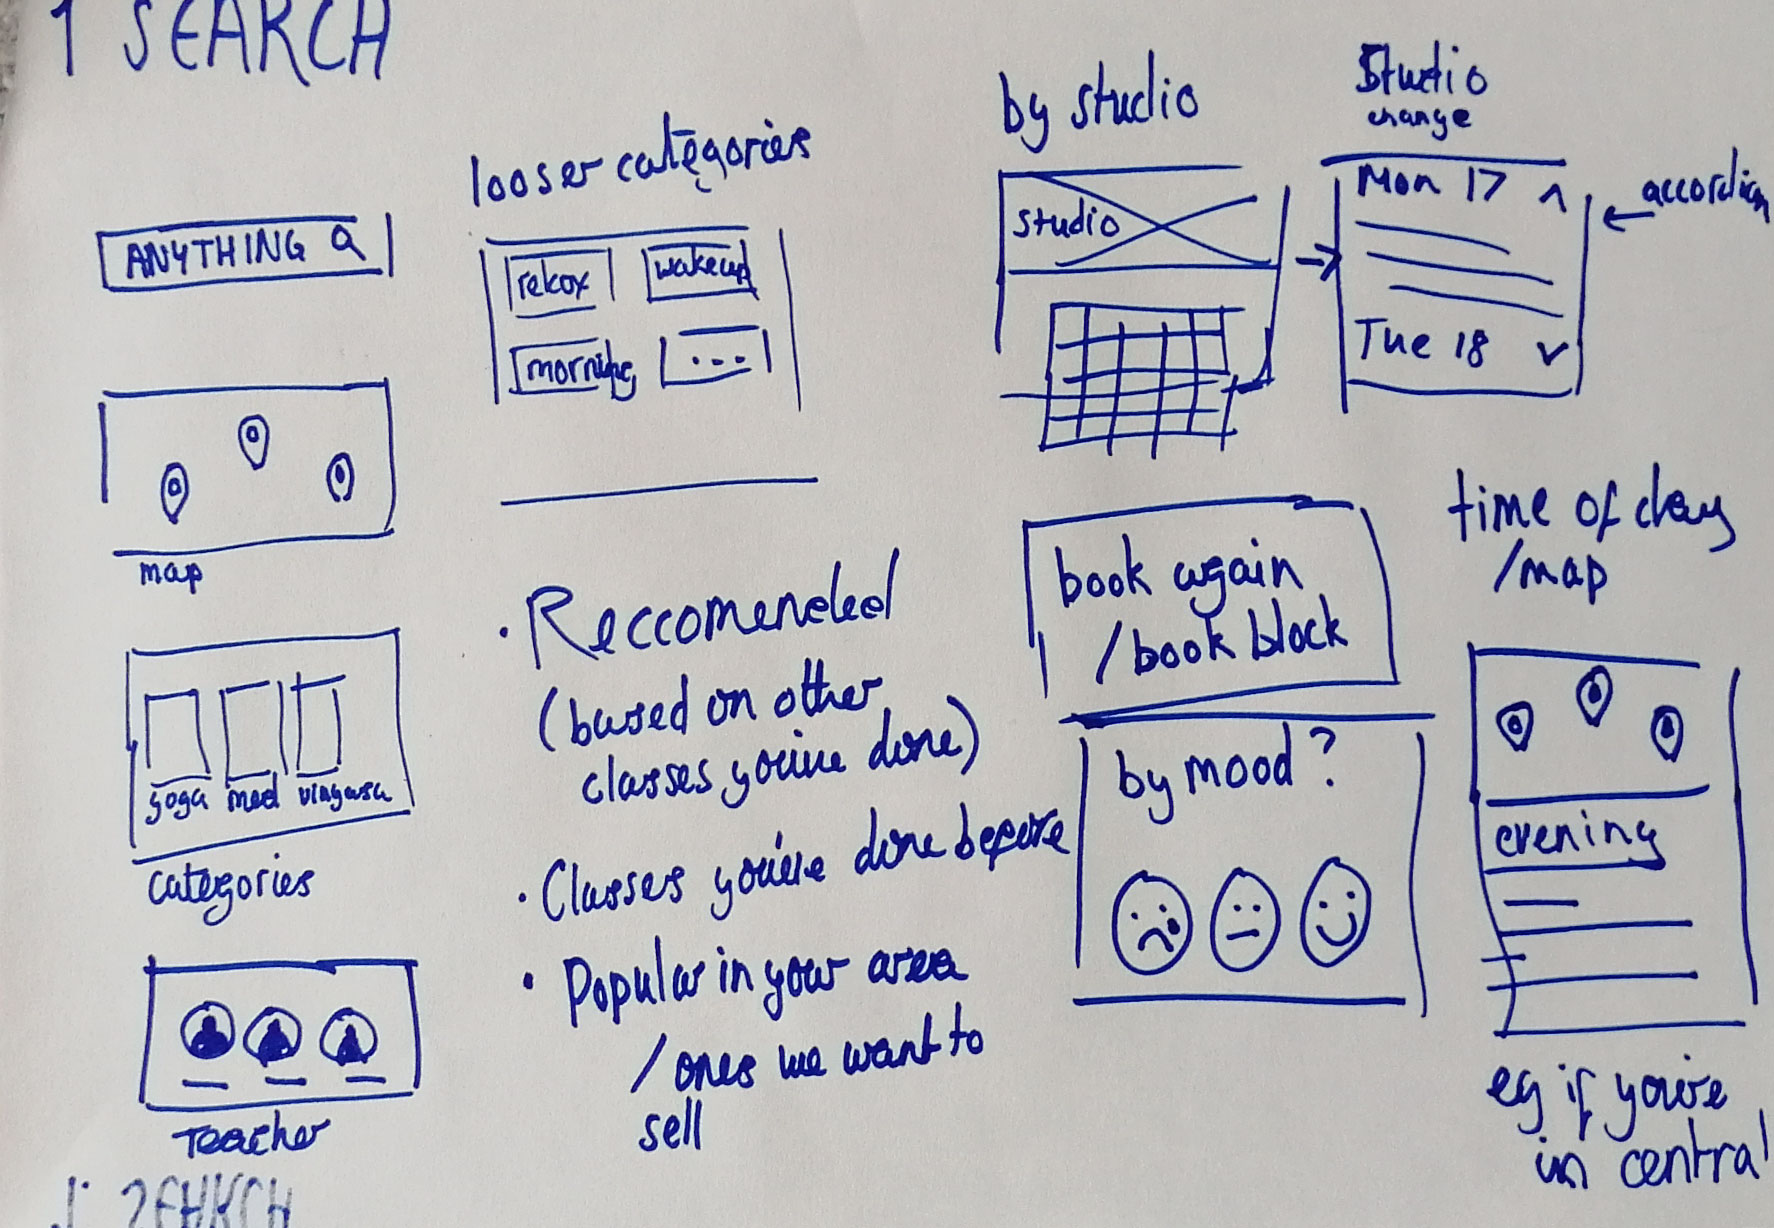 1 SEARCH
ANYTHING
map
yoga med vinyasa
categories
Teacher
looser categories
relax wakeup
morning ...
• Reccomended
(based on other
classes you've done)
• Classes you've done before
• Popular in your area
/ ones we want to
sell
by studio
studio
Studio
change
Mon 17
Tue 18
← accordian
book again
/book block
by mood?
time of day
/map
evening
eg if you're
in central